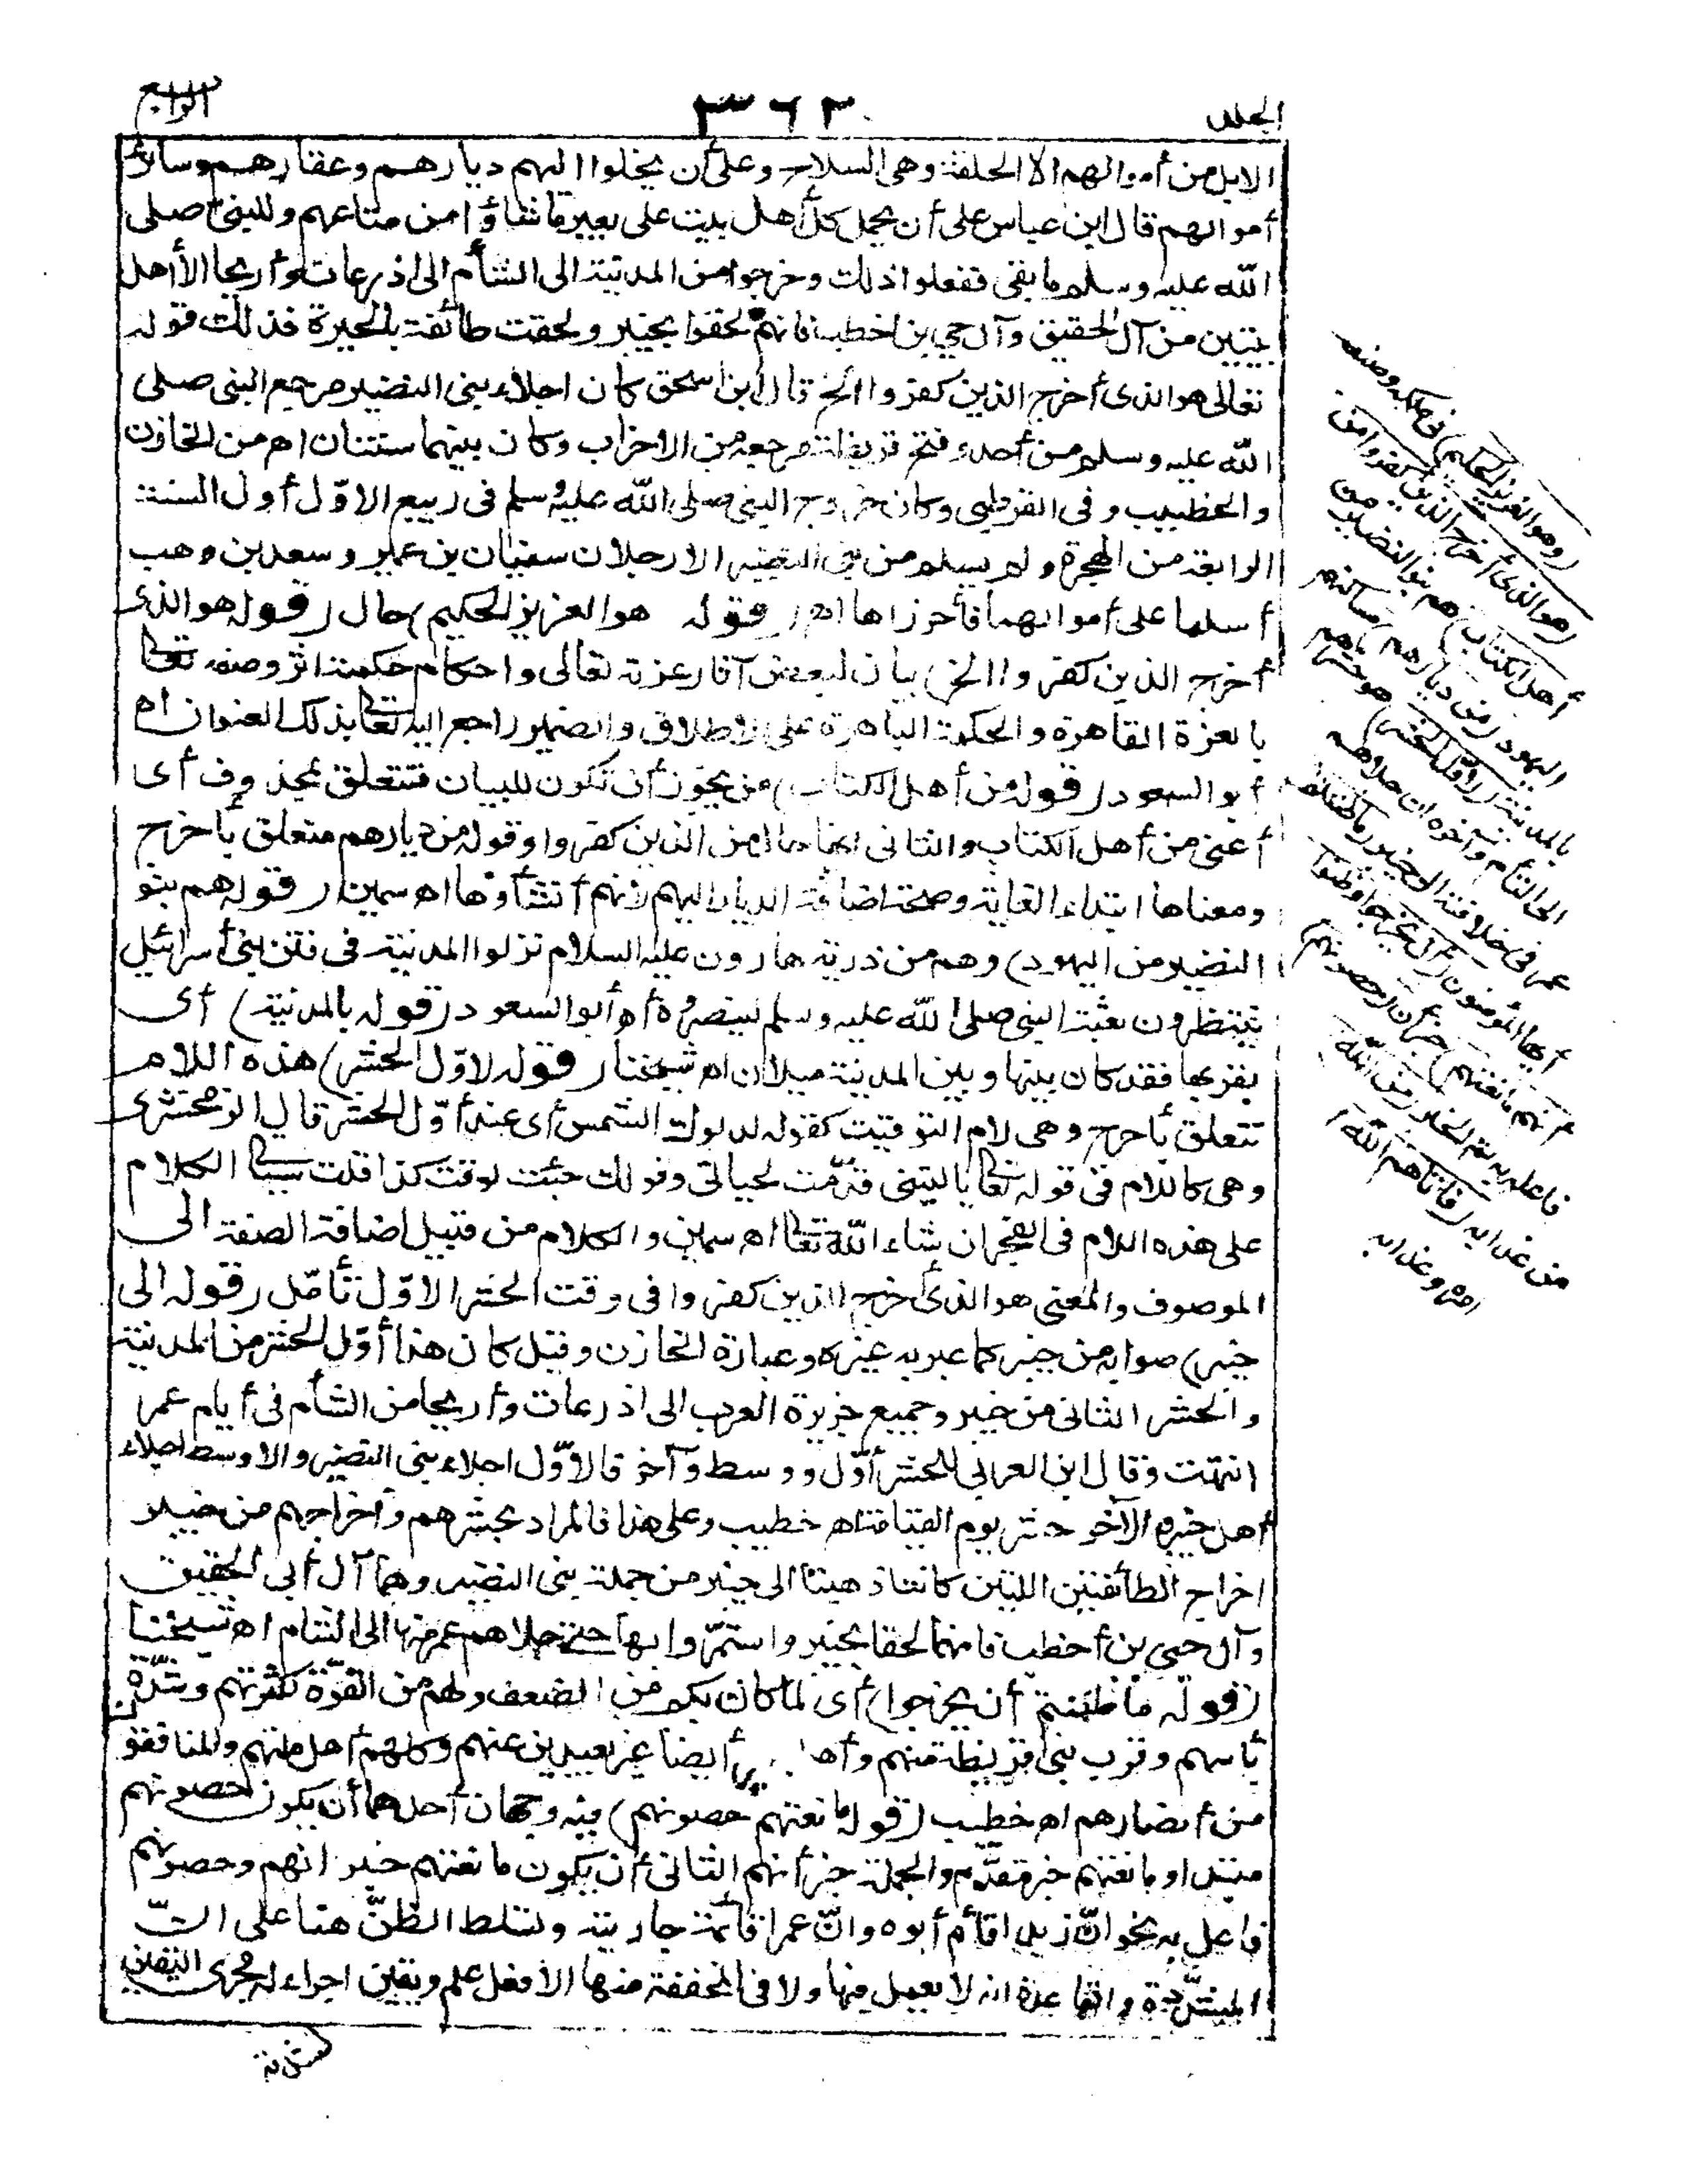 المجلد ٣٦٣ الرابع
الابل من أموالهم الا الحلقة وهى السلاح وعلى أن يخلوا الهم ديارهم وعقارهم وسائر
أموالهم قال ابن عباس على أن يحمل كل أهل بيت على بعير ما شاؤا من متاعهم وللنبى صلى
الله عليه وسلم ما بقى ففعلوا ذلك وخرجوا من المدينة الى الشأم الى اذرعات وأريحا الا أهل
بيتين من آل الحقيق وآل حيي بن اخطب فانهم لحقوا بخيبر ولحقت طائفة بالحيرة فذلك قوله
تعالى هو الذى أخرج الذين كفروا الخ قال ابن اسحق كان اجلاء بنى النضير مرجع النبى صلى
الله عليه وسلم من أحد وفتح قريظة مرجعه من الاحزاب وكان بينهما سنتان اه من الخازن
والخطيب وفى القرطبى وكان خروج النبى صلى الله عليه وسلم فى ربيع الاوّل أول السنة
الرابعة من الهجرة ولم يسلم من بنى النضير الا رجلان سفيان بن عمير وسعد بن وهب
أسلما على أموالهما فأحرزاها اه (قوله هو العزيز الحكيم) حال (قوله هو الذى
أخرج الذين كفروا الخ) بيان لبعض آثار عزته تعالى واحكام حكمته اثر وصفه تعالى
بالعزة القاهرة والحكمة الباهرة على الاطلاق والضمير راجع اليه تعالى بذلك العنوان اه
أبو السعود (قوله من أهل الكتاب) من يجوز أن تكون للبيان فتتعلق بمحذوف أى
أعنى من أهل الكتاب والثانى انها حال من الذين كفروا وقوله من ديارهم متعلق بأخرج
ومعناها ابتداء الغاية وصحة اضافة الديار اليهم لانهم أنشأوها اه سمين (قوله هم بنو
النضير من اليهود) وهم من ذرية هارون عليه السلام نزلوا المدينة فى فتن بنى أسرائيل
ينتظرون بعثة النبى صلى الله عليه وسلم لينصروه اه أبو السعود (قوله بالمدينة) أى
بقربها فقد كان بينها وبين المدينة ميلان اه شيخنا (قوله لاوّل الحشر) هذه اللام
تتعلق بأخرج وهى لام التوقيت كقوله لدلوك الشمس أى عند أوّل الحشر قال الزمخشرى
وهى كاللام فى قوله تعالى يا ليتنى قدّمت لحياتى وقولك جئت لوقت كذا قلت سيأتى الكلام
على هذه اللام فى الفجر ان شاء الله تعالى اه سمين والكلام من قبيل اضافة الصفة الى
الموصوف والمعنى هو الذى أخرج الذين كفروا فى وقت الحشر الاوّل تأمّل (قوله الى
خيبر) صوابه من خيبر كما عبر به غيره وعبارة الخازن وقيل كان هذا أوّل الحشر من المدينة
والحشر الثانى من خيبر وجميع جزيرة العرب الى اذرعات وأريحا من الشأم فى أيام عمر
انتهت وقال ابن العربى للحشر أوّل ووسط وآخر فالاوّل اجلاء بنى النضير والاوسط اجلاء
أهل خيبر والآخر حشر يوم القيامة اه خطيب وعلى هذا فالمراد بحشرهم وأخراجهم من خيبر
اخراج الطائفتين اللتين كانتا ذهبتا الى خيبر من جملة بنى النضير وهما آل أبى الحقيق
وآل حيى بن أخطب فانهما لحقا بخيبر واستمرّوا بها حتى جلاهم عمر منها الى الشام اه شيخنا
(قوله ما ظننتم أن يخرجوا) أى لما كان بكم من الضعف ولهم من القوّة لكثرتهم وشدّة
بأسهم وقرب بنى قريظة منهم وأهل أيضا غير بعيدين عنهم وكلهم أهل ملتهم والمنافقون
من أنصارهم اه خطيب (قوله مانعتهم حصونهم) فيه وجهان أحدهما أن يكون حصونهم
مبتدا ومانعتهم خبر مقدّم والجملة خبر أنهم الثانى أن يكون مانعتهم خبر انهم وحصونهم
فاعل به نحو انّ زيدا قائم أبوه وانّ عمرا قائمة جاريته وتسلط الظنّ هنا على انّ
المشدّدة والقاعدة انه لا يعمل فيها ولا فى المخففة منها الا فعل علم ويقين اجراء له مجرى اليقين
(وهو العزيز الحكيم) فى ملكه وصنعه
(هو الذى أخرج الذين كفروا من
أهل الكتاب) هم بنو النضير من
اليهود (من ديارهم) مساكنهم
بالمدينة (لاوّل الحشر) هو حشرهم
الى الشأم وآخره ان جلاهم
عمر فى خلافته الى خيبر (ما ظننتم)
أيها المؤمنون (أن يخرجوا وظنوا
أنهم مانعتهم) خبر أن (حصونهم)
فاعله به تم الخبر (من الله)
من عذابه (فأتاهم الله)
امره وعذابه